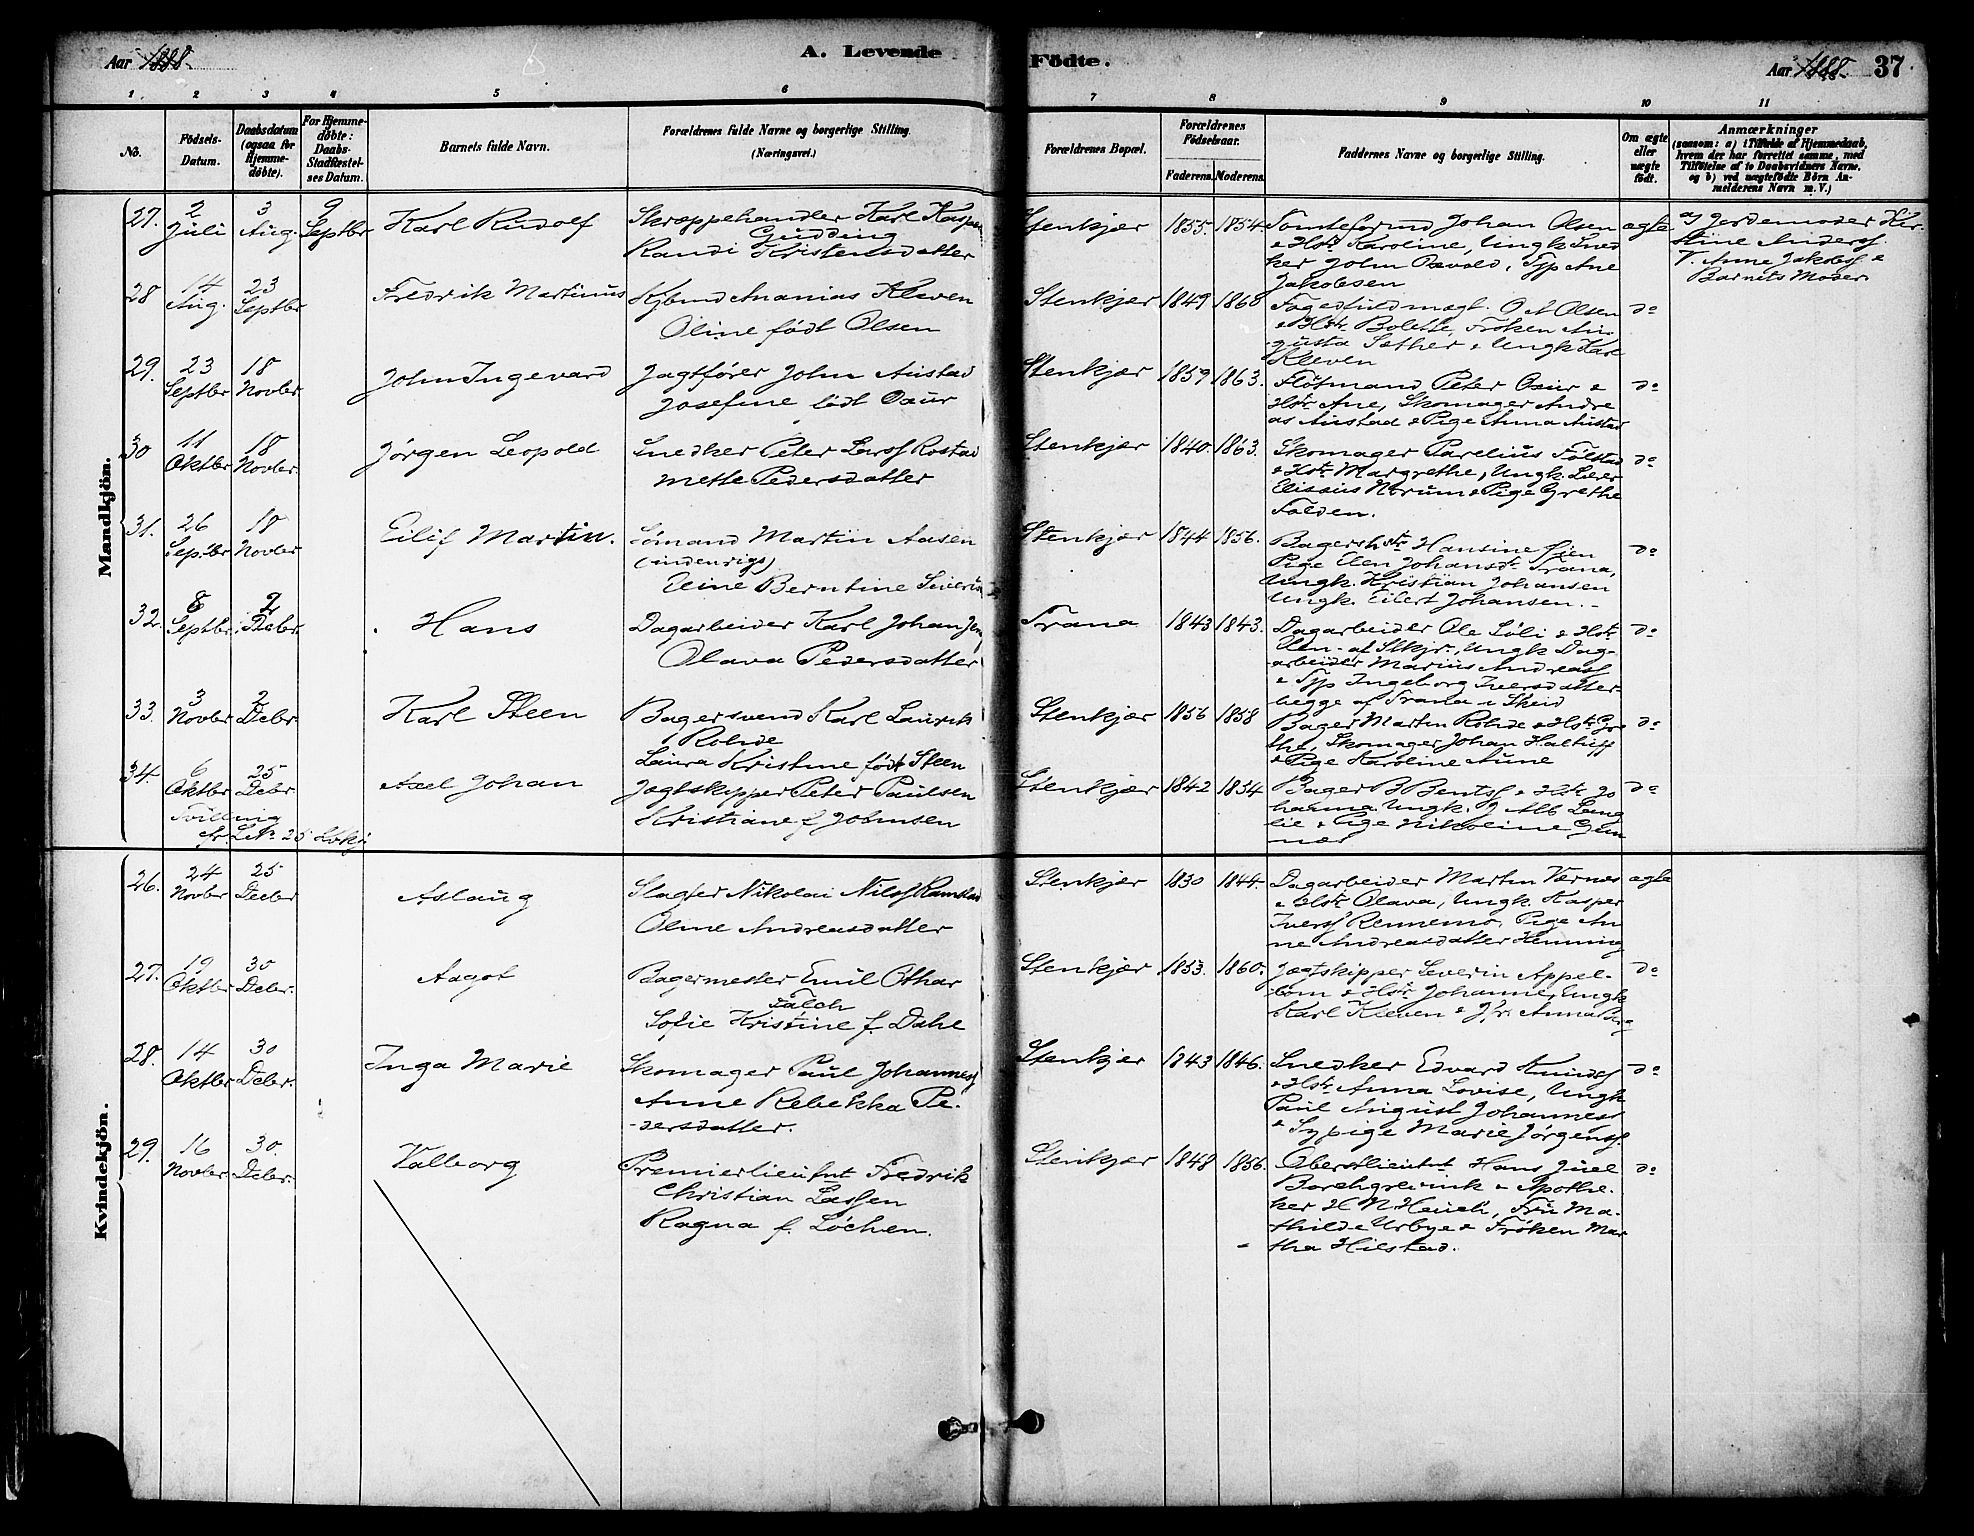 Aar 1888.
A. Levende
Födte.
Aar 1888.
37
1 2 3 4 5 6 7 8 9 10 11
No.
Födsels-Datum.
Daabsdatum (ogsaa for Hjemme-döbte).
For Hjemme-döbte: Daabs-Stadfæstel-ses Datum.
Barnets fulde Navn.
Forældrenes fulde Navne og borgerlige Stilling. (Næringsvei.)
Forældrenes Bopæl.
Forældrenes Födselsaar.
Faderens. Moderens.
Faddernes Navne og borgerlige Stilling.
Om ægte eller uægte födt.
Anmærkninger
(saasom: a) i Tilfælde af Hjemmedaab,
hvem der har forrettet samme, med
Tilföielse af to Daabsvidners Navne,
og b) ved uægtefödte Börn An-
melderens Navn m. V.)
Mandkjön.
27. 2 Juli 3 Aug. 9 Septbr
Karl Rudolf
Skræppehandler Karl Kasper
Gudding
Randi Kristensdatter
Stenkjær 1855. 1854.
Tomteformd Johan Olsen
& Hstr Karoline, Ungk Sned
ker John Øvald, Syp Ane
Jakobsen
ægte
a) Jordemoder Kir-
stine Anderss.
V. Anne Jakobs &
Barnets Moder
28 14 Aug. 23 Septbr
Fredrik Martinus
Kjbmd Ananias Kleven
Oline født Olsen
Stenkjær 1849 1860
Fogedfuldmægt. O A Olsen
& Hstr Bolette, Frøken Au-
gusta Sæther & Ungk Karl
Kleven
do
29. 23 Septbr 18 Novbr
John Ingevard
Jagtfører John Austad
Josefine født Oxur
Stenkjær 1859 1863.
Fløtmand Peter Oxur &
Hstr Ane, Skomager Andre
as Austad & Pige Anna Austad
do
30 11 Oktbr 18 Novbr.
Jørgen Leopold
Snedker Peter Larss Rostad
Mette Pedersdatter
Stenkjær 1840. 1863.
Skomager Parelius Følstad
& Hstr Margrethe, Ungk Lærer
Elisæus Norum & Pige Grethe
Folden.
do
31. 26 Septbr 18 Novbr
Eilif Martin.
Sømand Martin Aasen
(indenrigs)
Eline Berntine
Stenkjær 1844 1856.
Bagershstr Hansine
Pige Elen Johansdr Trana,
Ungk. Kristian Johansen
Ungk. Eilert Johansen.
do
32. 8 Septbr. 2 Decbr.
Hans
Dagarbeider Karl Johan
Olava Pedersdatter
Trana 1843 1843.
Dagarbeider Ole Søli & Hstr
Elen - af Stkjr., Ungk Dag-
arbeider Marius Andreass
& Syp Ingeborg Iversdatter
begge af Trana i Skeid
do
33. 3 Novbr 2 Decbr.
Karl Steen
Bagersvend Karl Laurik
Rohde
Laura Kristine født Steen
Stenkjær 1856 1858
Bager Martin Rohde & Hstr Gre
the, Skomager Johan
& Pige Karoline Aune
do
34. 6 Oktbr 25 Decbr
Tvilling
Axel Johan
Jagtskipper Peter Paulsen
Kristiane f. Johnsen
Stenkjær 1842 1854
Bager B Bents & Hstr Jo
hanna Ungk. J Alb Lang
lie & Pige Nikoline
do
Kvindekjön.
26. 24 Novbr 25 Decbr
Aslaug
Slagter Nikolai Nilss Ramstad
Oline Andreasdatter
Stenkjær 1830 1844.
Dagarbeider Martin Værnes
& Hstr Olava, Ungk. Kasper
Iverss Rennemo, Pige An
ne Andreasdatter Henning
ægte
27. 19 Oktbr 30 Decbr.
Aagot
Bagermester Emil Othar
Falch
Sofie Kristine f. Dahl
Stenkjær 1853. 1860.
Jægtskipper Severin Appel-
bom & Hstr Johanne, Ungk
Karl Kleven & Jfr. Anna Berg
do
28. 14 Oktbr 30 Decbr.
Inga Marie
Skomager Paul Johanness
Anne Rebekka Pe-
dersdatter.
Stenkjær 1843 1846.
Snedker Edvard Knuds
& Hstr Anna Lovise, Ungk
Paul August Johanness
& Sypige Marie Jørgens.
do
29. 16 Novbr 30. Decbr.
Valborg
Premierlieutnt Fredrik
Christian Lassen
Ragna f. Løchen.
Stenkjær 1848 1856.
Oberstlieutnt Hans Juel
Borchgrevink & Apothe-
ker H N Heuch, Fru Ma-
thilde Urbye & Frøken Mar
tha Hilstad.
do